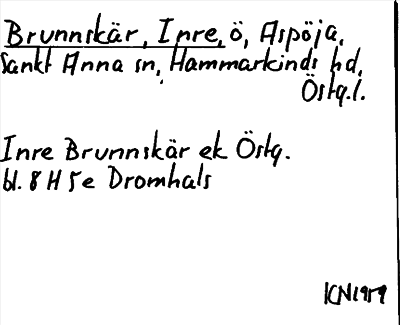 Brunnskär, Inre, ö, Aspöja,
Sankt Anna sn, Hammarkinds hd,
Östg.l.
Inre Brunnskär ek Östg.
bl. 8 H 5e Dromhals
KN1959